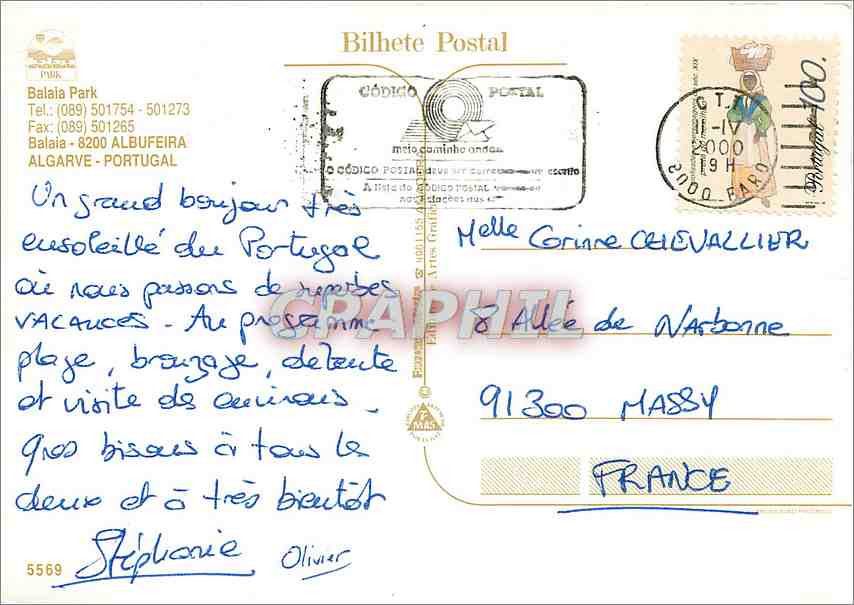 Bilhete Postal
PARK
Balaia Park
Tel.: (089) 501754 - 501273
Fax: (089) 501265
Balaia - 8200 ALBUFEIRA
ALGARVE - PORTUGAL
CÓDIGO POSTAL
meio caminho andado
O CÓDIGO POSTAL deve ser escrito
A lista do CÓDIGO POSTAL
nas estações dos
CTT
-IV
2000
9H
8000 FARO
100.
Portugal
Un grand bonjour très
ensoleillé du Portugal
où nous passons de superbes
VACANCES - Au programme
plage, bronzage, detente
et visite des environs -
Gros bisous à tous les
deux et à très bientôt
Stéphanie Olivier
Melle Corinne CHEVALLIER
8 Allée de Narbonne
91300 MASSY
FRANCE
GRAPHIL
MAS
5569